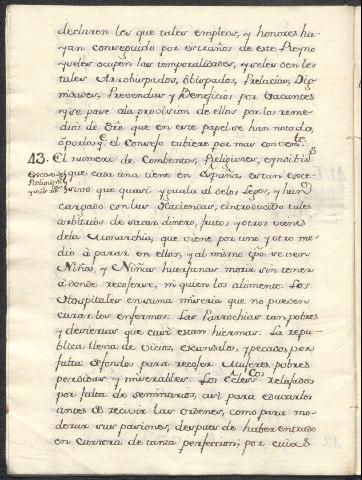 declaren los que tales empleos, y honores ha-
yan conseguido por estraños de este Reyno
y seles ocupen las temporalidades, y seles den los
tales Arzobispados, Obispados, Prelacias, Dig-
nidades, Prevendas y Beneficios por Vacantes
y se pase ala provision de ellos por los reme-
dios de dro que en este papel se han notado,
ó por los q.e el Consejo tubiere por mas conven.tes
43. El numero de Combentos, Religiones, e institu.s
que cada una tiene en España, estan exce-
sivo que quasi yguala al delos Legos, y han
cargado con las Haciendas, e introducido tales
arbitrios de sacar dinero, frutos y otros vienes
dela Monarchia, que viene por uno y otro me-
dio à parar en ellos, y al mismo tpo se veen
Niños, y Niñas huerfanas morir sin tener
à donde recoferse, ni quien los alimente: Los
Hospitales en suma miseria que no pueden
curar los enfermos: Las Parrochias tan pobres
y desiertas que casi estan hiermas: La repu-
blica llena de vicios, escandalos, y pecados, por
falta de fondos para recoser Mugeres pobres
perdidas y miserables: Los Eclesi.cos relajados
por falta de seminarios, asi para educarlos
antes de recivir las ordenes, como para mo-
derar sus pasiones, despues de haber entrado
en carrera de tanta perfeccion; por cuia